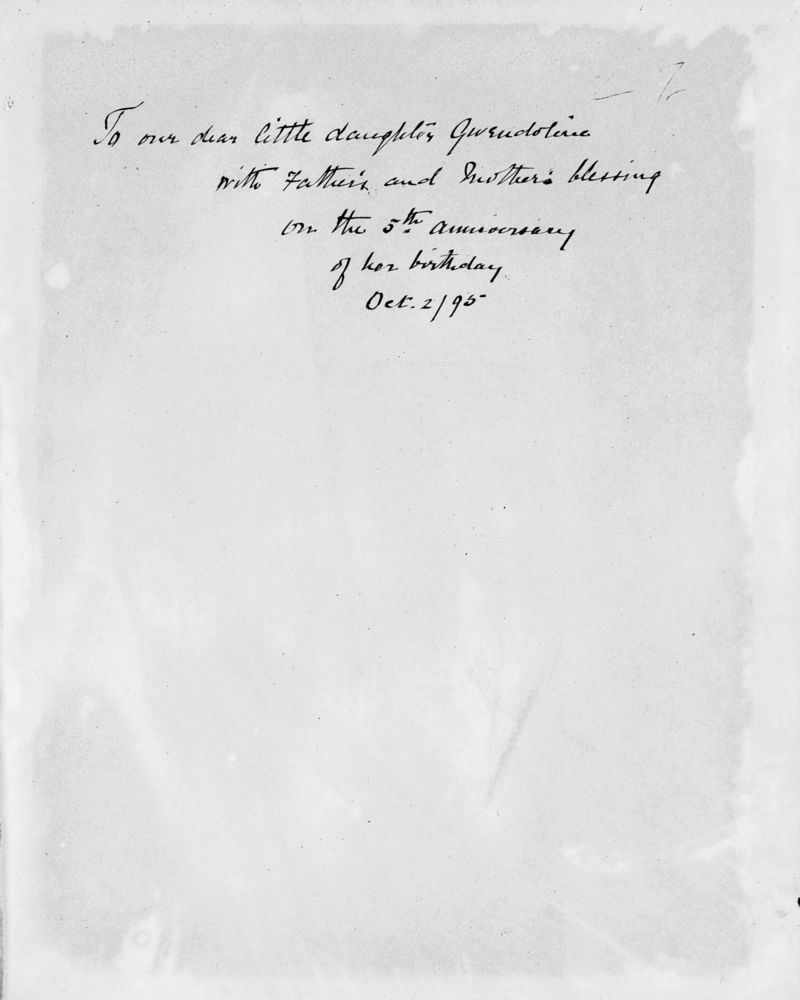 To our dear little daughter Gwendoline
with Father's and Mother's blessing
on the 5th anniversary
of her birthday
Oct. 2/95